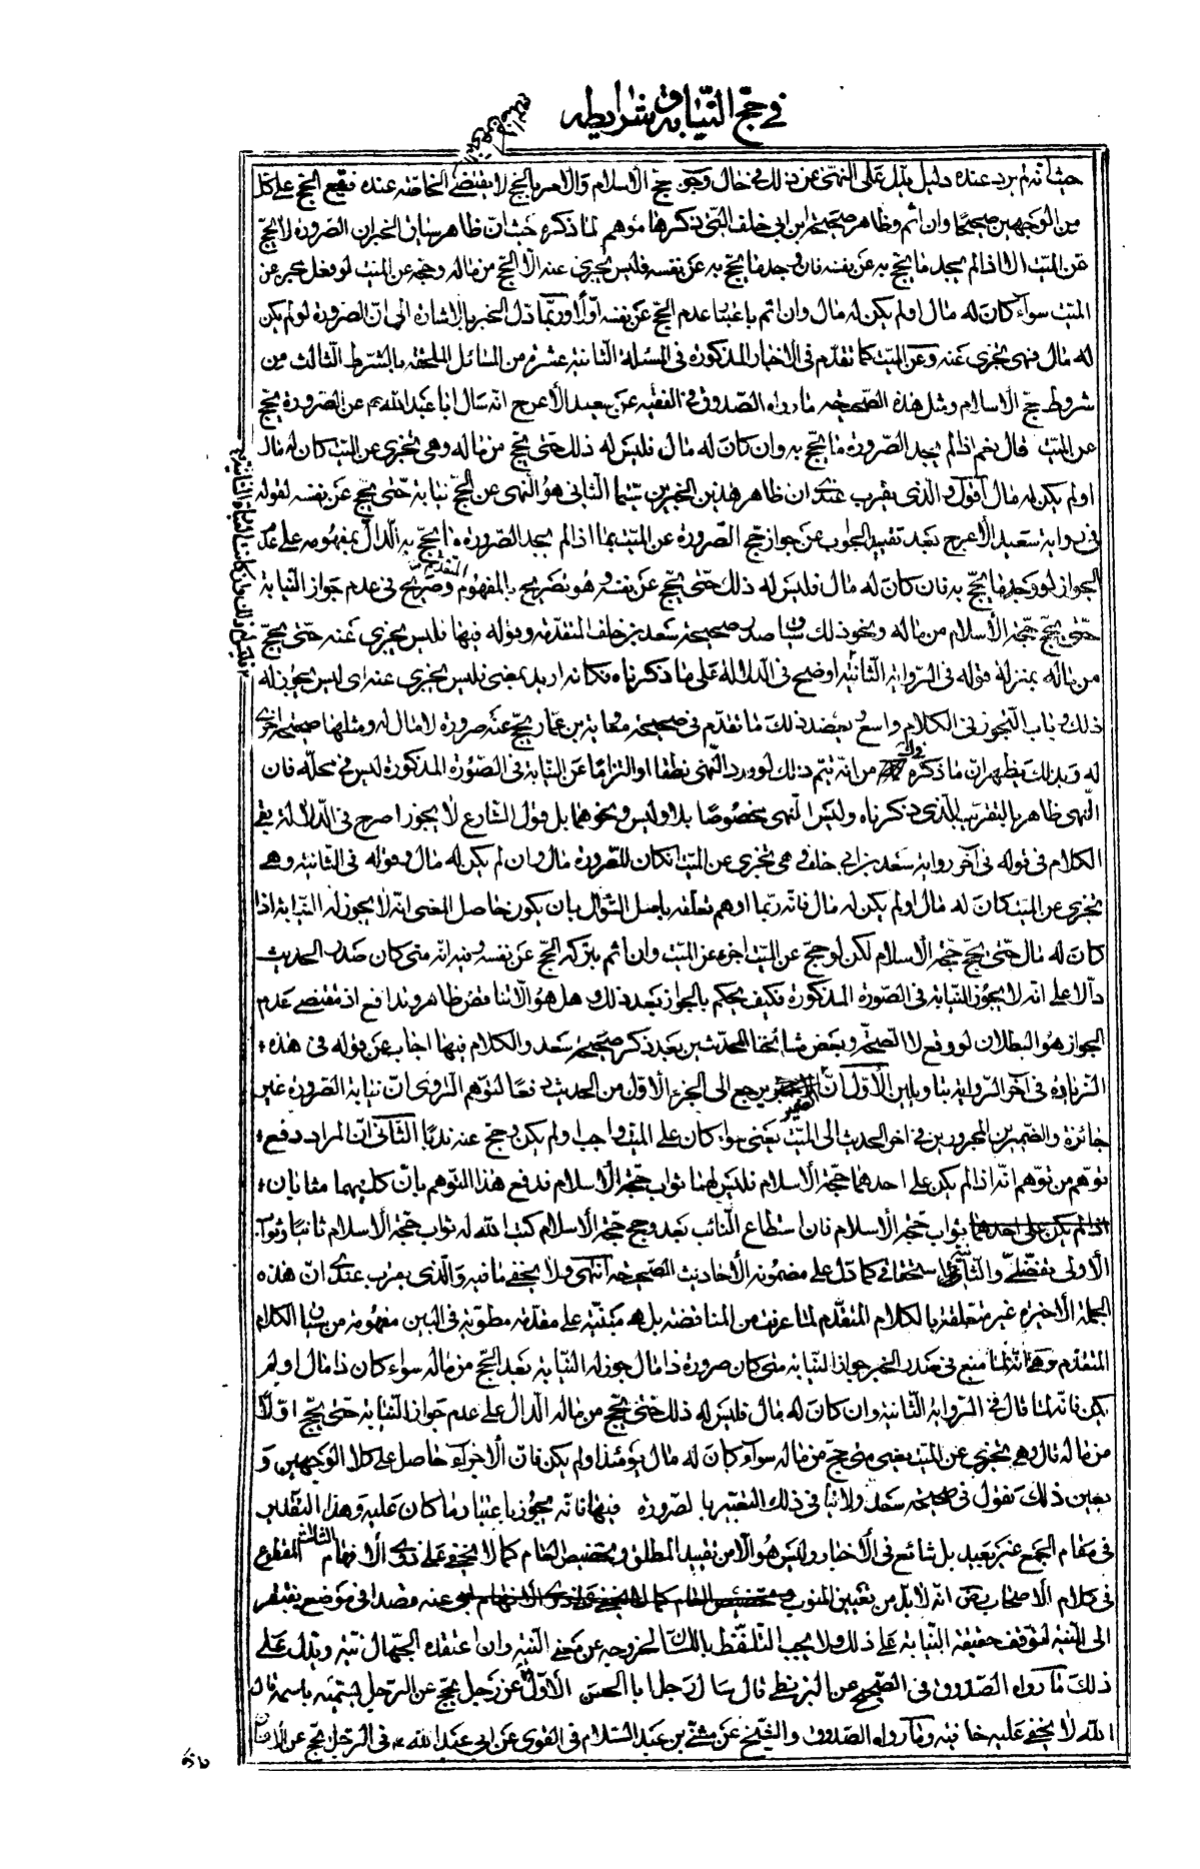 في حج النيابة وشرايطه
حيث انه لم يرد عنده دليل يدل على النهي عن ذلك في حال وجوب حج الاسلام والامر بالحج لا يقتضي النهي عن ضده فيقع الحج على كل
من الوجهين صحيحا وان اثم وظاهر صحيحة ابن ابي خلف التي ذكرها موهم لما ذكره حيث ان ظاهر سياق الخبر ان الصرورة لا يحج
عن الميت الا اذا لم يجد ما يحج به عن نفسه فان وجد ما يحج به عن نفسه فليس يجزي عنه الا الحج من ماله وحجه عن الميت لو فعل مجز عن
الميت سواء كان له مال او لم يكن له مال وان اثم باعتبار عدم الحج عن نفسه اولا وربما دل الخبر بالاشارة الى ان الصرورة لو لم يكن
له مال فهي تجزي عنه وعن الميت كما تقدم في الاخبار المذكورة في المسئلة الثانية عشرة من المسائل الملحقة بالشرط الثالث من
شروط حج الاسلام ومثل هذه الصحيحة ما رواه الصدوق في الفقيه عن سعيد الاعرج انه سال ابا عبد الله ع عن الصرورة يحج
عن الميت قال نعم اذا لم يجد الصرورة ما يحج به وان كان له مال فليس له ذلك حتى يحج من ماله وهي تجزي عن الميت كان له مال
او لم يكن له مال اقول والذي يقرب عندي ان ظاهر هذين الخبرين سيما الثاني هو النهي عن الحج نيابة حتى يحج عن نفسه لقوله
في رواية سعيد الاعرج بعد تقييد الجواب عن جواز حج الصرورة عن الميت بما اذا لم يجد الصرورة ما يحج به الدال بمفهومه على عدم
الجواز لو وجد ما يحج به فان كان له مال فليس له ذلك حتى يحج عن نفسه وهو تصريح بالمفهوم المتقدم وصريح في عدم جواز النيابة
حتى يحج حجة الاسلام من ماله ونحو ذلك سياق صدر صحيحة سعد بن خلف المتقدمة وقوله فيها فليس يجزي عنه حتى يحج
من ماله بمنزلة قوله في الرواية الثانية اوضح في الدلالة على ما ذكرناه فكانه اريد بمعنى فليس يجزي عنه اي ليس يجوز له
ذلك وباب التجوز في الكلام واسع ويعضد ذلك ما تقدم في صحيحة معاوية بن عمار يحج عنه صرورة لا مال له ومثلها صحيحة اخرى
له وبذلك يظهر ان ما ذكره من انه يتم ذلك لو ورد النهي نطقا او التزاما عن النيابة في الصورة المذكورة ليس في محله فان
النهي ظاهر بالتقريب الذي ذكرناه وليس النهي مخصوصا بلا وليس ونحوهما بل قول الشارع لا يجوز اصرح في الدلالة بقي
الكلام في قوله في آخر رواية سعد بن ابي خلف وهي تجزي عن الميت ان كان للصرورة مال وان لم يكن له مال وقوله في الثانية وهي
تجزي عن الميت كان له مال او لم يكن له مال فانه ربما اوهم تعلقه باصل السؤال بان يكون حاصل المعنى انه لا يجوز له النيابة اذا
كان له مال حتى يحج حجة الاسلام لكن لو حج عن الميت اجزء عن الميت وان اثم بتركه الحج عن نفسه وفيه انه متى كان صدر الحديث
دالا على انه لا يجوز النيابة في الصورة المذكورة فكيف يحكم بالجواز بعد ذلك وهل هو الا تناقض ظاهر وتدافع اذ مقتضى عدم
الجواز هو البطلان لو وقع لا الصحة وبعض مشائخنا المحدثين بعد ذكر صحيحة سعد والكلام فيها اجاب عن قوله في هذه
الزيادة في آخر الرواية بتاويلين الاول ان الضمير يرجع الى الجزء الاول من الحديث دفعا لتوهم الراوي ان نيابة الصرورة غير
جائزة والضميرين المجرورين في اخر الحديث الى الميت يعني سواء كان على الميت واجبا ولم يكن وحج عنه ندبا الثاني ان المراد دفع
توهم من توهم انه اذا لم يكن على احدهما حجة الاسلام فليس لهما ثواب حجة الاسلام فدفع هذا التوهم بان كليهما مثابان
ثواب حجة الاسلام فان استطاع النائب بعد وحج حجة الاسلام كتب الله له ثواب حجة الاسلام ثانيا وثواب
الاولى تفضلي والثاني استحقاقي كما دل على مضمونه الاحاديث الصحيحة انتهى ولا يخفى ما فيه والذي يقرب عندي ان هذه
الجملة الاخيرة غير متعلقة بالكلام المتقدم لما عرفت من المناقضة بل هي مبتنية على مقدمة مطوية في البين مفهومة من سياق الكلام
المتقدم وهي انه لما منع في صدر الخبر جواز النيابة متى كان صرورة ذا مال جوز له النيابة بعد الحج من ماله سواء كان ذا مال او لم
يكن فانه لما قال في الرواية الثانية وان كان له مال فليس له ذلك حتى يحج من ماله الدال على عدم جواز النيابة حتى يحج اولا
من ماله قال وهي تجزي عن الميت يعني متى حج من ماله سواء كان له مال يومئذ او لم يكن فان الاجزاء حاصل على كلا الوجهين و
بعين ذلك نقول في صحيحة سعد ولا ينافي ذلك التعبير بالصرورة فيها فانه مجوز باعتبار ما كان عليه وهذا التقدير
في مقام الجمع غير بعيد بل شائع في الاخبار وليس هو الا من تقييد المطلق وتخصيص العام كما لا يخفى على ذوي الافهام الثالث المقطوع
في كلام الاصحاب رض انه لا بد من تعيين المنوب عنه قصدا في موضع يفتقر
الى النية لتوقف حقيقة النيابة على ذلك ولا يجب التلفظ باللسان لخروجه عن معنى النية وان اعتقده الجهال نية ويدل على
ذلك ما رواه الصدوق في الصحيح عن البزنطي قال سال رجل ابا الحسن الاول عن رجل يحج عن الرجل يسميه باسمه قال
الله لا يخفى عليه خافية وما رواه الصدوق والشيخ عن مثنى بن عبد السلام في القوي عن ابي عبد الله ع في الرجل يحج عن الانسان